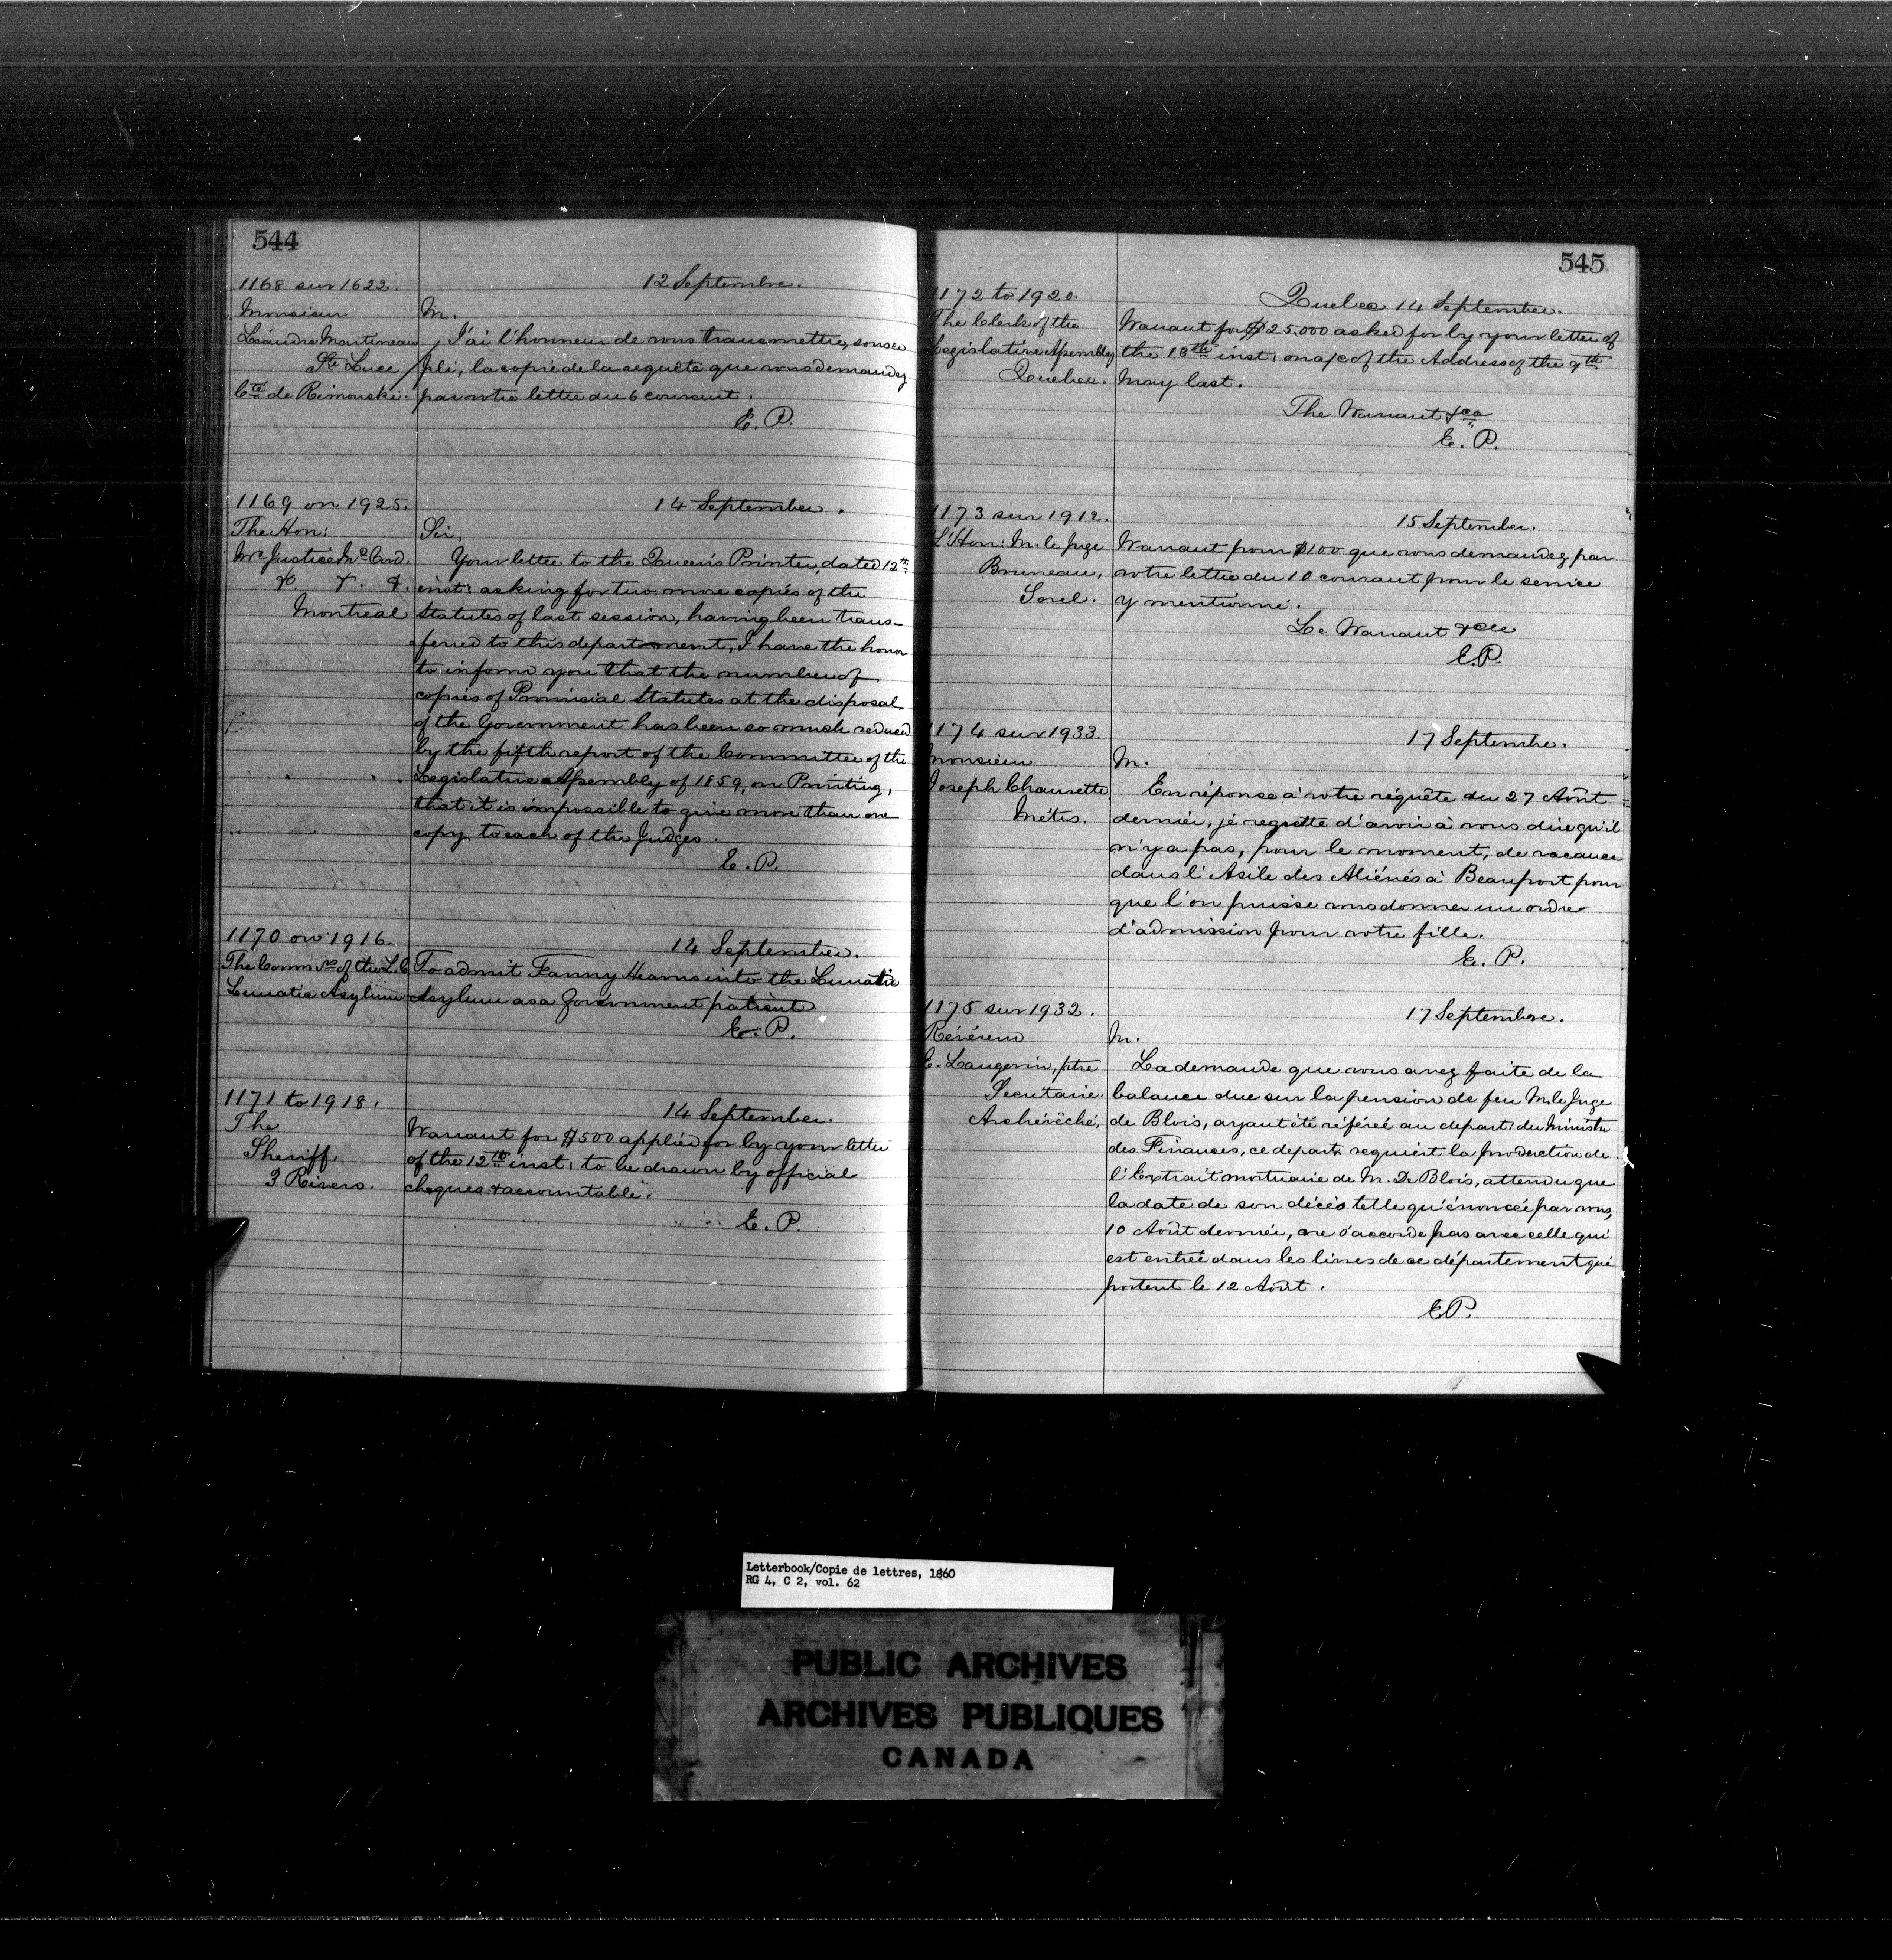 544
1168 sur 1622.
12 Septembre.
Monsieur
Léandre Martineau
Ste Luce
Cté de Rimouski.
M.
J'ai l'honneur de vous transmettre, sous ce
pli, la copie de la requête que vous demandez
par votre lettre du 6 courant.
E. P.
1169 on 1925.
14 September.
The Hon:
Mr Justice McCord
&. &. &.
Montreal
Sir,
Your letter to the Queen's Printer, dated 12th
inst: asking for two more copies of the
Statutes of last session, having been trans-
ferred to this department, I have the honor
to inform you that the number of
copies of Provincial Statutes at the disposal
of the Government has been so much reduced
by the fifth report of the Committee of the
Legislative Assembly of 1859, on Printing,
that it is impossible to give more than one
copy to each of the Judges.
E. P.
1170 on 1916.
14 September.
The Commrs of the L.C.
Lunatic Asylum
To admit Fanny Hearns into the Lunatic
Asylum as a Government patient
E. P.
1171 to 1918.
14 September.
The
Sheriff.
3 Rivers.
Warrant for $500 applied for by your letter
of the 12th inst: to be drawn by official
cheques & accountable.
E. P.
545
1172 to 1920.
Quebec 14 September.
The Clerk of the
Legislative Assembly
Quebec.
Warrant for $25,000 asked for by your letter of
the 13th inst: on a/c of the Address of the 9th
May last.
The Warrant &ca
E. P.
1173 sur 1912.
15 September.
L'Hon: M. le Juge
Bruneau,
Sorel.
Warrant pour $100 que vous demandez par
votre lettre du 10 courant pour le service
y mentionné.
Le Warrant &c
E. P.
1174 sur 1933.
17 Septembre.
Monsieur
Joseph Chaurette
Métis.
M.
En réponse à votre réquête du 27 Août
dernier, je regrette d'avoir à vous dire qu'il
n'y a pas, pour le moment, de vacance
dans l'Asile des Aliénés à Beauport pour
que l'on puisse vous donner un ordre
d'admission pour votre fille.
E. P.
1175 sur 1932.
17 Septembre.
Révérend
E. Langevin, ptre
Secrétaire
Archévêché,
M.
La demande que vous avez faite de la
balance due sur la pension de feu M. le Juge
de Blois, ayant été référée au départ: du Ministre
des Finances, ce départ: requiert la production de
l'Extrait mortuaire de M. De Blois, attendu que
la date de son décès telle qu'énoncée par vous,
10 Août dernier, ne s'accorde pas avec celle qui
est entrée dans les livres de ce département qui
portent le 12 Août.
E. P.
Letterbook/Copie de lettres, 1860
RG 4, C 2, vol. 62
PUBLIC ARCHIVES
ARCHIVES PUBLIQUES
CANADA